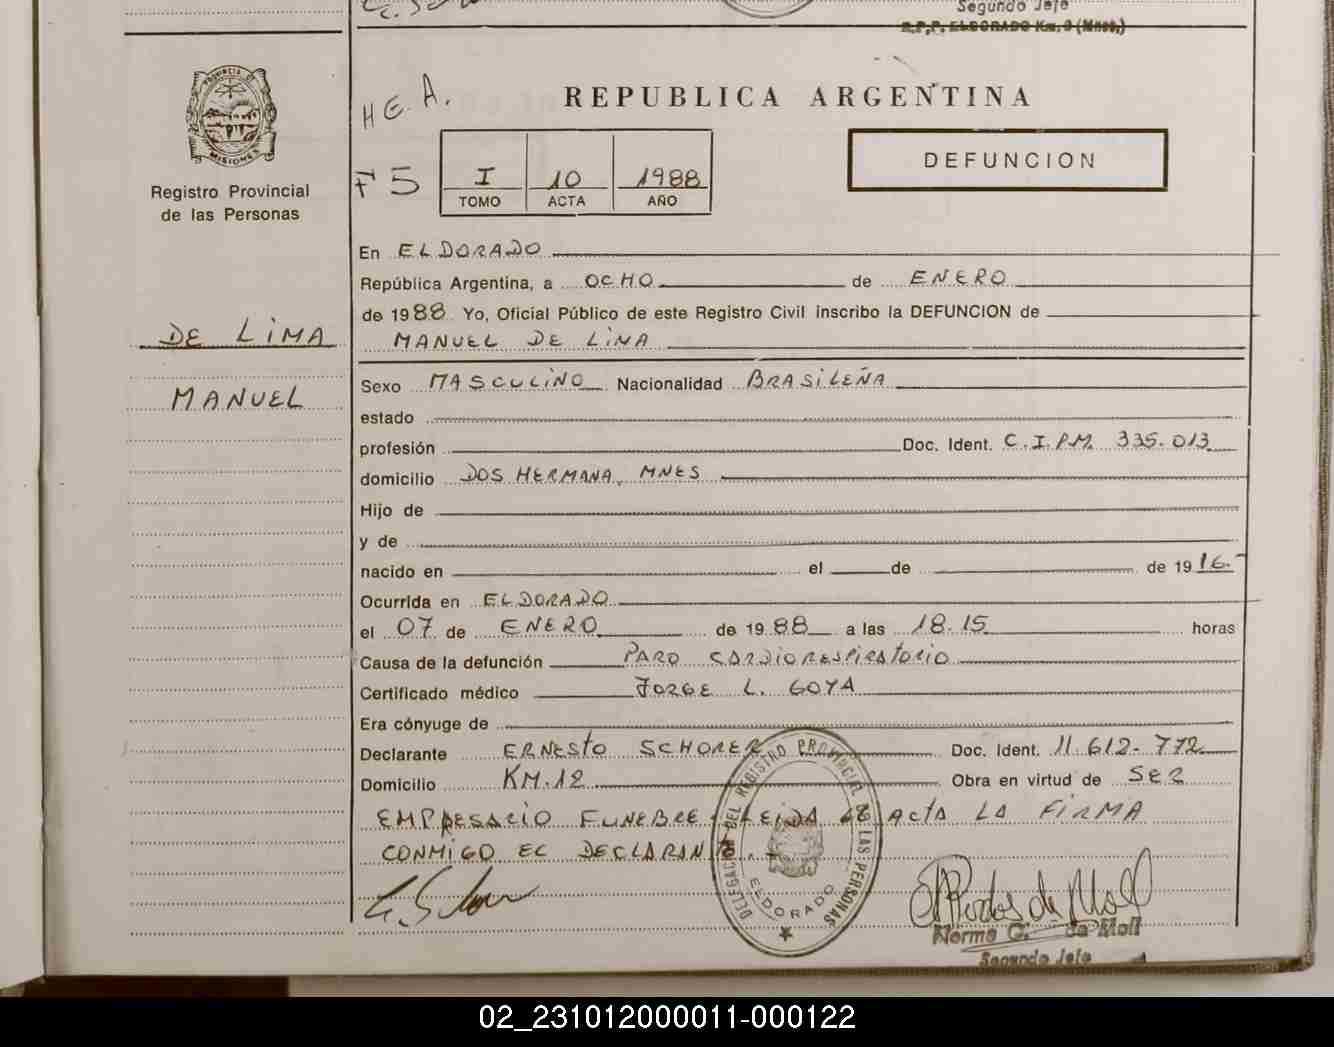 Segundo Jefe
R.P.P. ELDORADO Km. 9 (Mnes.)
PROVINCIA DE
MISIONES
Registro Provincial
de las Personas
DE LIMA
MANUEL
H E. A.
F 5
REPUBLICA ARGENTINA
I 10 1988
TOMO ACTA AÑO
DEFUNCION
En ELDORADO
República Argentina, a OCHO de ENERO
de 1988 Yo, Oficial Público de este Registro Civil inscribo la DEFUNCION de
MANUEL DE LIMA
Sexo MASCULINO Nacionalidad BRASILEÑA
estado
profesión Doc. Ident. C.I.P.M. 335.013
domicilio DOS HERMANA, MNES
Hijo de
y de
nacido en el de de 1916.-
Ocurrida en ELDORADO
el 07 de ENERO de 1988 a las 18.15 horas
Causa de la defunción PARO CARDIORESPIRATORIO
Certificado médico JORGE L. GOYA
Era cónyuge de
Declarante ERNESTO SCHORER Doc. Ident. 11.612.772
Domicilio KM.12 Obra en virtud de SER
EMPRESARIO FUNEBRE LEIDA EL ACTA LA FIRMA
CONMIGO EL DECLARANTE.-
DELEGACION DEL REGISTRO PROVINCIAL DE LAS PERSONAS
ELDORADO
Norma G. de Moll
Segundo Jefe
02_231012000011-000122